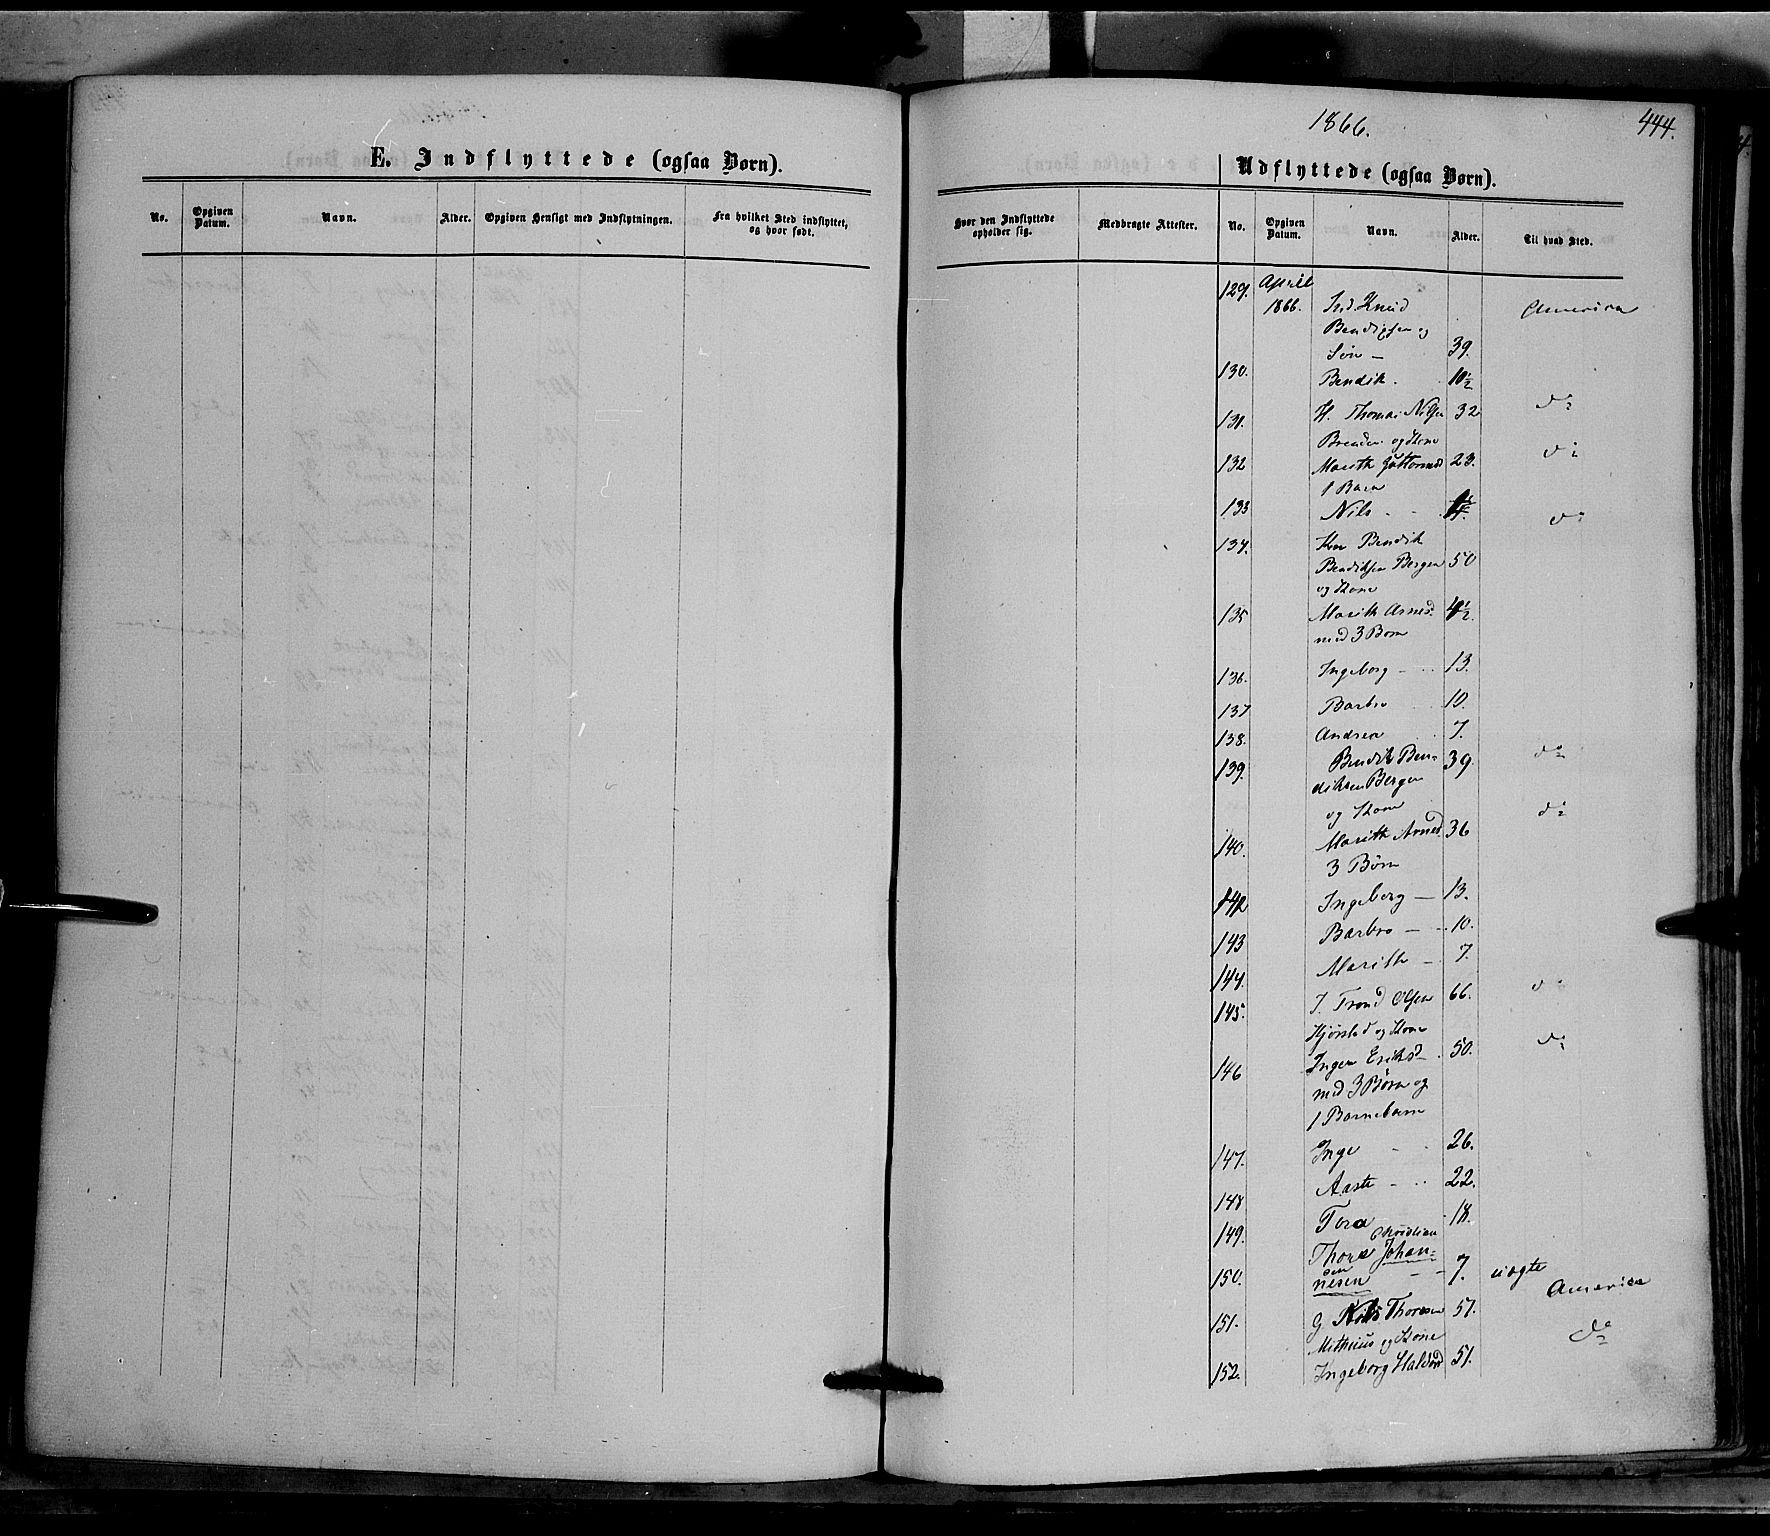 1866.
444.
E. Indflyttede (ogsaa Børn).
Udflyttede (ogsaa Børn).
No. Opgiven Datum. Navn. Alder. Opgiven Hensigt med Indflytningen. Fra hvilket Sted indflyttet, og hvor født.
Hvor den Indflyttede opholder sig. Medbragte Attester. No. Opgiven Datum. Navn. Alder. Til hvad Sted.
129. April
1866. Ind. Knud America
Bendiksen og
Søn — 39.
130. Bendik. 10½
131. H. Thomas Nilsen 32 do
Brenden og Kone
132 Marith Guttormsd 23. do
1 Barn
133 Nils
134. Bendik do
Bendiksen Bergen 50
og Kone
135 Marith Arnesd. 4½
med 3 Born
136. Ingeborg — 13.
137 Barbro 10.
138. Andrea 7.
139. Bendik Ben- 39. do
diksen Bergen
og Kone do
140. Marith Arnesd 36
3 Børn
142 Ingeborg — 13.
143 Barbro — 10.
144. Marith — 7.
145. J. Trond Olsen 66. do
Hjørstad og Kone
146 Ingen Eriksd 50. do
med 3 Børn og
1 Barnebarn
147. Inge 26.
148 Aaste 22.
149. Tora 18.
Christian
Thore Johan-
sen
150. nesen 7. uægte
America
151. G. Nils Thoresen 57.
og Kone do
152. Ingeborg Haldord 51.